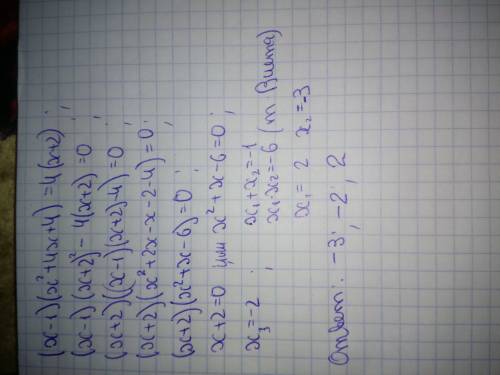 (x-1)(x²+4x+4)=4(x+2);
(x-1)(x+2)²-4(x+2)=0;
(x+2)((x-1)(x+2)-4)=0;
(x+2)(x²+2x-x-2-4)=0;
(x+2)(x²+x-6)=0;
x+2=0 или x²+x-6=0;
x₃=-2; x₁+x₂=-1
x₁·x₂=-6 (т. Виета)
x₁=2 x₂=-3
Ответ: -3; -2; 2